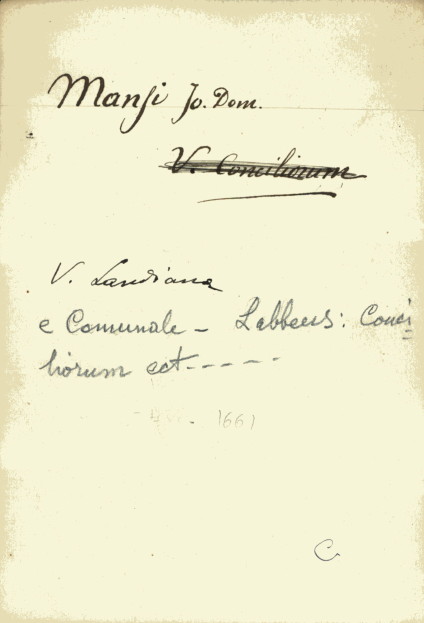 Mansi Jo. Dom.
V. Conciliorum
V. Landiana
e Comunale - Labbeus: Conci
liorum ect-----
1661
C